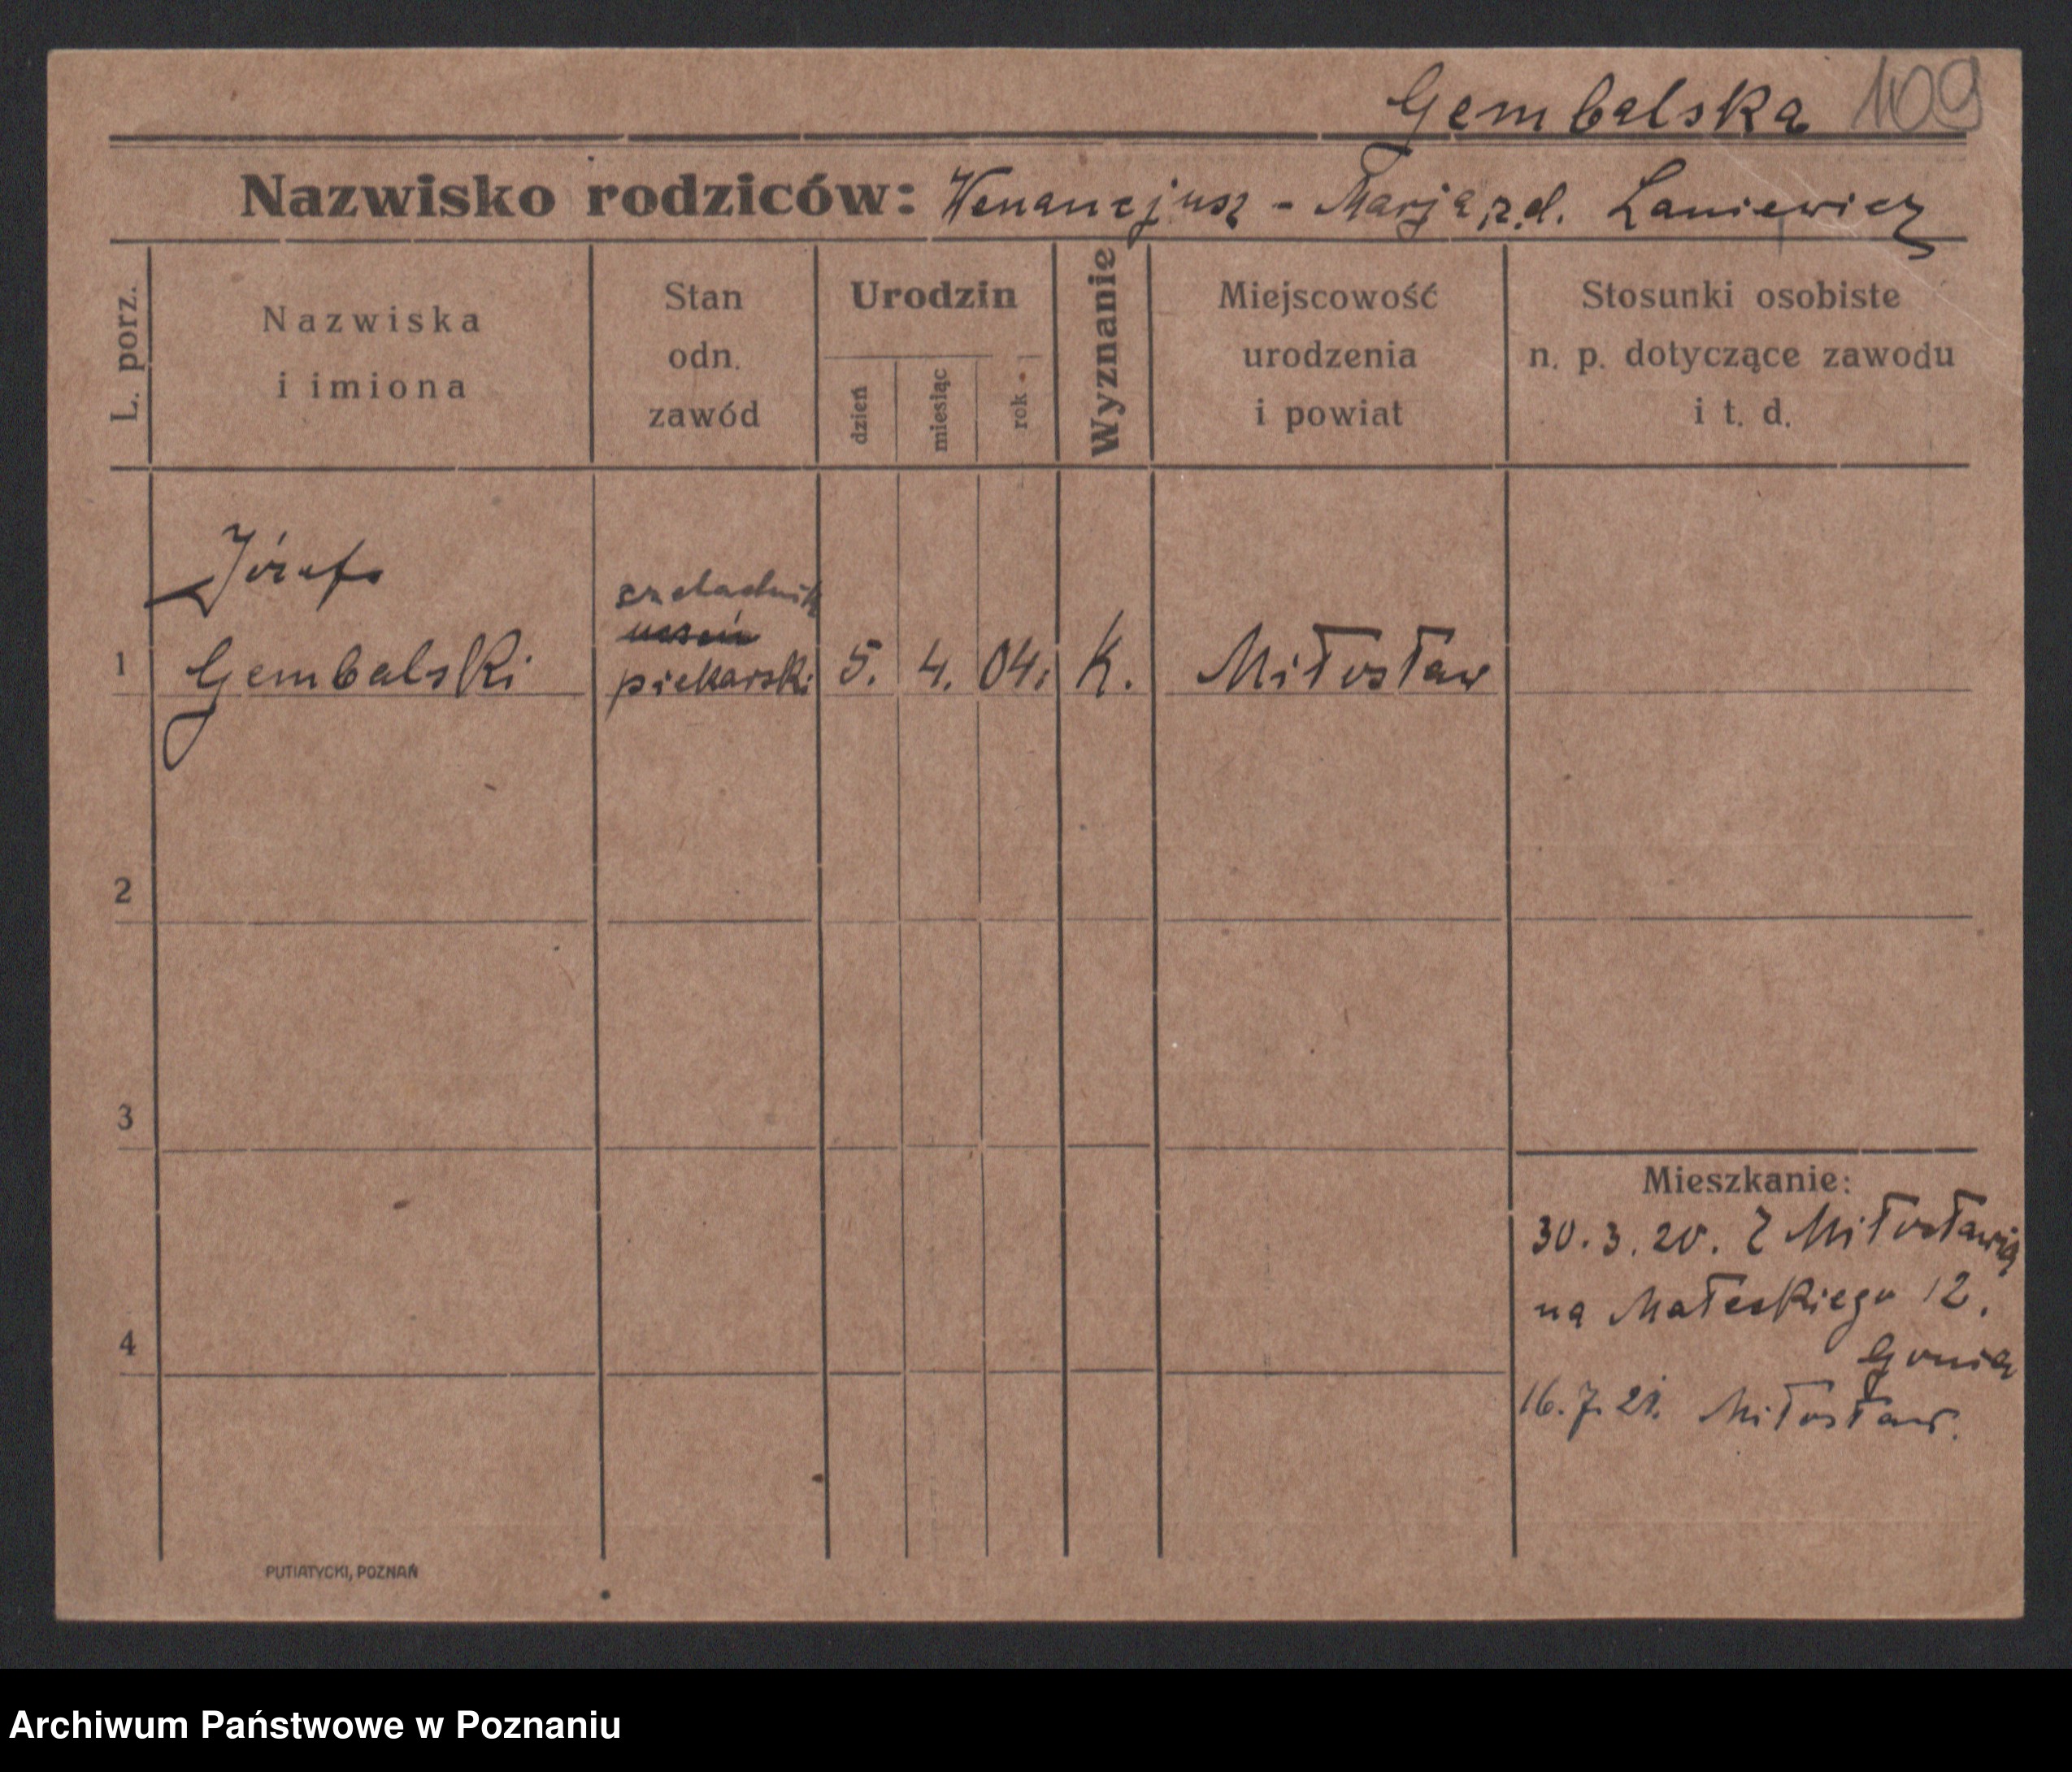 Gembalska 109
Nazwisko rodziców: Wenancjusz - Marja z.d. Laniewicz
L. porz.
Nazwiska
i imiona
Stan
odn.
zawód
Urodzin
dzień
miesiąc
rok
Wyznanie
Miejscowość
urodzenia
i powiat
Stosunki osobiste
n. p. dotyczące zawodu
i t. d.
Józef
czeladnik
uczeń
1 Gembalski piekarski 5. 4. 04. K. Miłosław
2
3
Mieszkanie:
30.3.20. Z Miłosławia
na Małeckiego 12.
4
16.7.21. Miłosław.
PUTIATYCKI, POZNAŃ
Archiwum Państwowe w Poznaniu